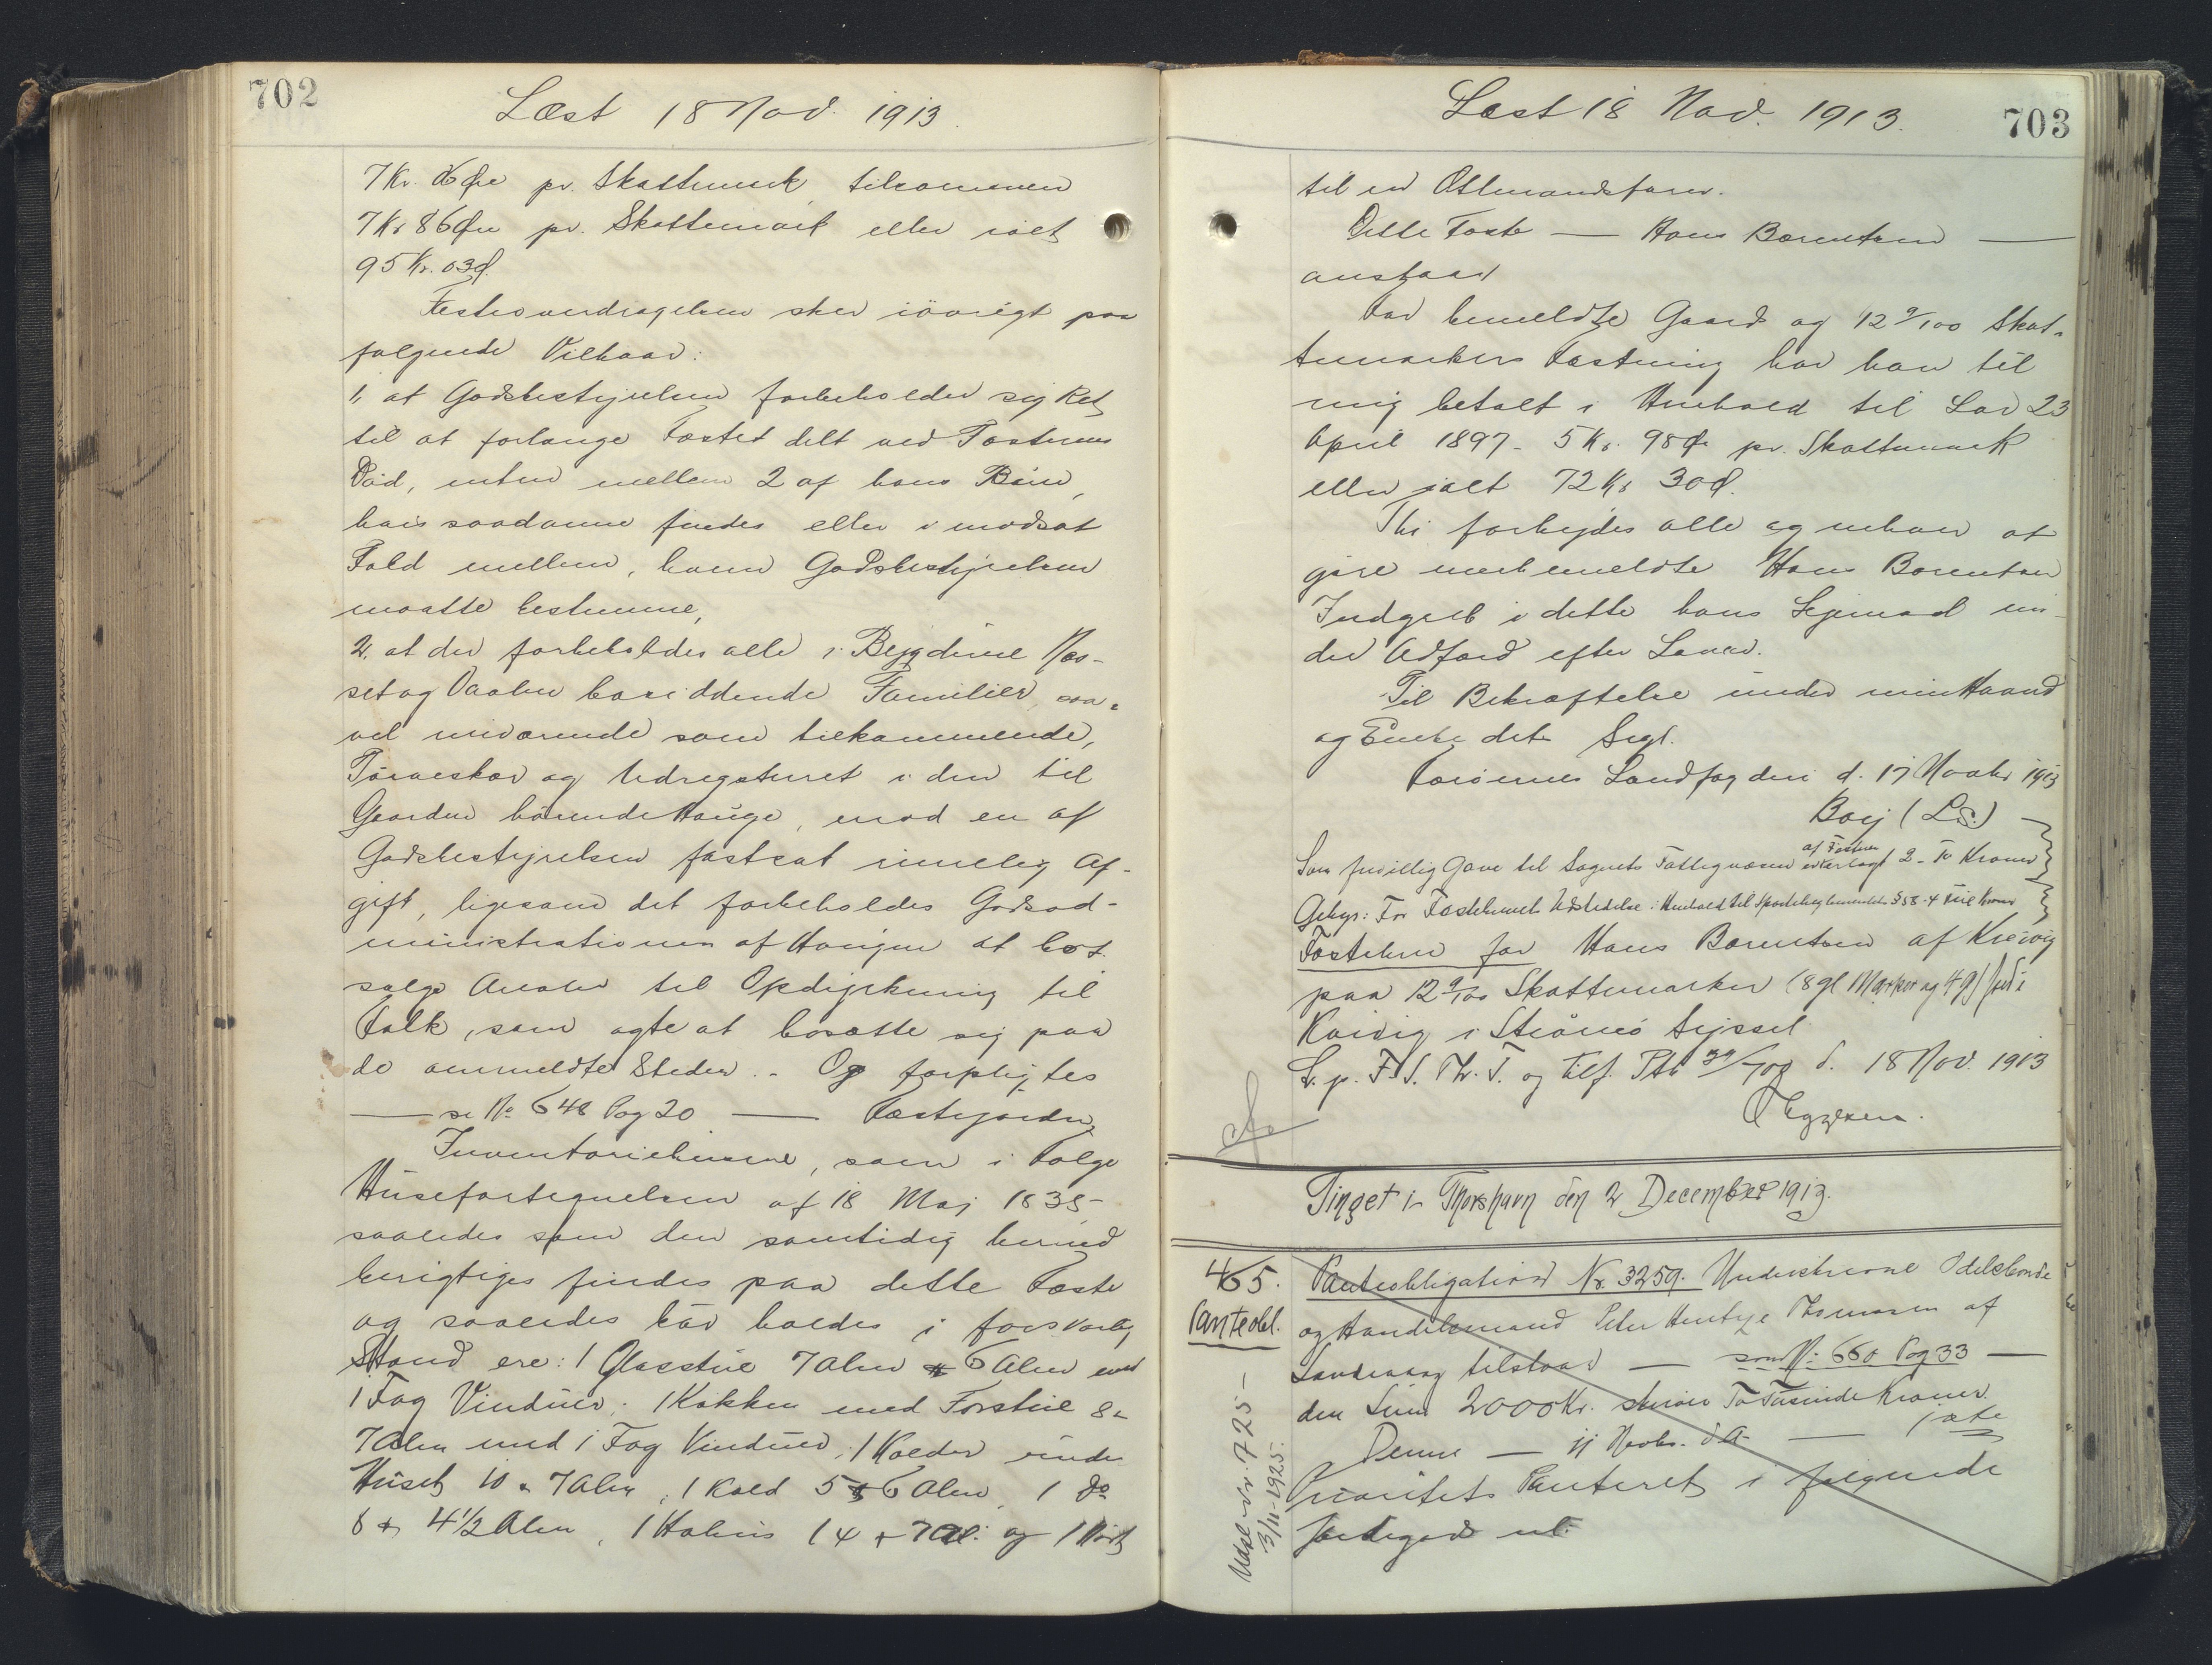 702
Læst 18 Nov. 1913.
7 Kr. 86 Øre pr. Skattemark tilsammen
7 Kr 86 Øre pr. Skattemark eller ialt
95 Kr. 03 Ø.
Fæsteoverdragelsen sker iövrigt paa
følgende Vilkaar:
1, at Godsbestyrelsen forbeholder sig Ret
til at forlange Fæstet delt ved Fæsterens
Död, enten mellem 2 af hans Börn,
hvis saadanne findes eller i modsat
Fald mellem, hvem Godsbestyrelsen
maatte bestemme,
2, at der forbeholdes alle i Bygderne Næs-
set og Vaalen bosiddende Familier, saa-
vel nuværende som tilkommende,
Törveskær og Udregsturret i den til
Gaarden hörende Hauge, mod en af
Godsbestyrelsen fastsat rimelig Af-
gift, ligesom det forbeholdes Godsad-
ministrationen af Haugen at bort-
sælge Arealer til Opdyrkning til
Folk, som agte at bosætte sig paa
de ommeldte Steder. - Og forpligtes
— se No 648 Pag 20 — Fæstejorden,
Inventariehusene, som i Følge
Husefortegnelsen af 18 Maj 1835
saaledes som den samtidig hermed
berigtiges findes paa dette Fæste
og saaledes bör holdes i forsvarlig
Stand ere: 1 Glasstue 7 Alen x 6 Alen med
1 Fag Vinduer; 1 Kökken med Forstue 8 x
7 Alen med 1 Fag Vinduer, 1 Kælder under
Huset 10 x 7 Alen, 1 Kold 5 x 6 Alen, 1 do
8 x 4½ Alen, 1 Hohus 14 x 7 Al. og 1
Læst 18 Nov. 1913.
703
til en Ottemandsfarer.
Dette Fæste — Hans Barentsen —
anstaar
For bemeldte Gaard og 12 9/100 Skat-
temarkers Fæstning har han til
mig betalt i Henhold til Lov 23
April 1897 - 5 Kr. 98 Ø pr. Skattemark
eller ialt 72 Kr 30 Ø.
Thi forbydes alle og enhver at
göre merbemeldte Hans Barentsen
Indgreb i dette hans Lejemaal un-
der Adfærd efter Loven.
Til Bekræftelse under min Haand
og Embedets Segl.
Færöernes Landfogderi d. 17 Novbr 1913
Baÿ (L.S.)
Som frivillig Gave til Sognets Fattigvæsen af Fæsteren erlagt 2 - To Kroner
Gebyr: For Fæstebrevets Udstedelse i Henhold til Sportelreglementets § 58 - 4 fire Kroner
Fæstebrev for Hans Barentsen af Kvivig
paa 12 9/100 Skattemarker (8 gl Marker og 4 G) Jord i
Kvivig i Strömö Syssel
L. p. F. S. Th. T. og tilf. Ptb 39/702 d. 18 Nov. 1913
Tinget i Thorshavn den 2 December 1913.
465.
Panteobl.
Panteobligation Nr. 3259. Underskrevne Odelsbonde
og Handelsmand Peter Thomsen af
Sandevaag tilstaar — som No 660 Pag 33 —
den Sum 2000 Kr. skriver To Tusinde Kroner.
Denne — 11 Novbr. d.A. — 1ste
Prioritets Panteret i følgende
Jordegods
Udsl. Nr. 725 -
3/11-1925.